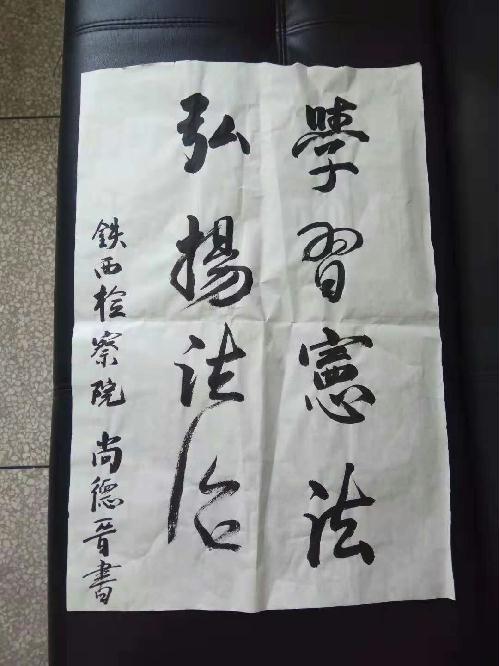 學習憲法
弘揚法治
鉄西检察院 尚德晋書